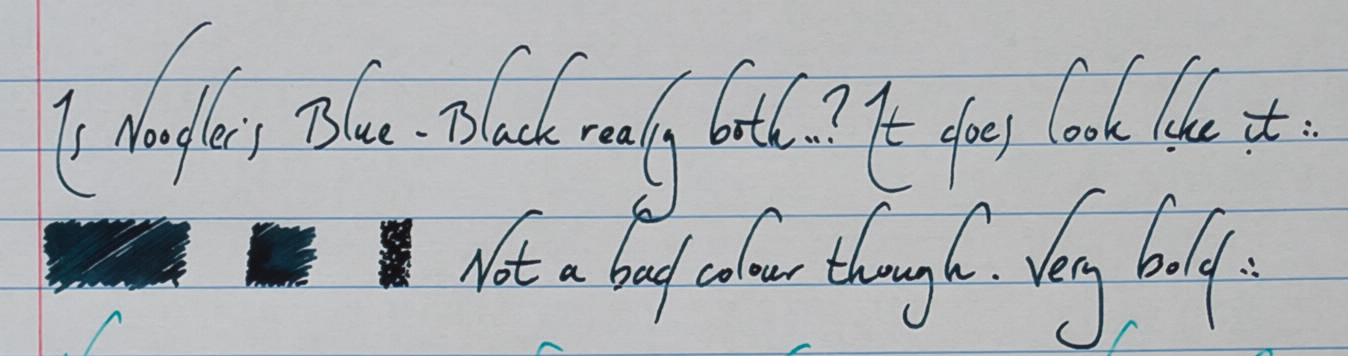 Is Noodler's Blue-Black really both..? It does look like it ∴
Not a bad colour though. Very bold ∴